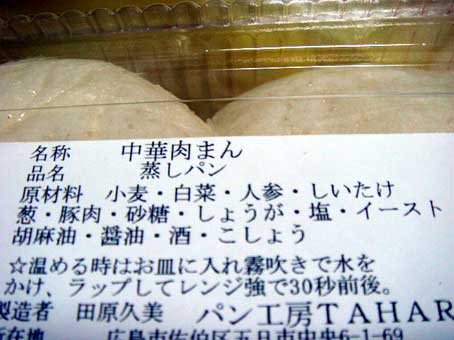 名称　中華肉まん
品名　蒸しパン
原材料　小麦・白菜・人参・しいたけ
葱・豚肉・砂糖・しょうが・塩・イースト
胡麻油・醤油・酒・こしょう
☆温める時はお皿に入れ霧吹きで水を
かけ、ラップしてレンジ強で30秒前後。
製造者　田原久美　パン工房TAHAR
所在地　広島市佐伯区五日市中央6-1-69